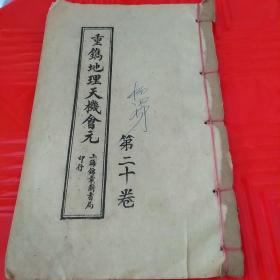 重鐫地理天機會元
上海錦章圖書局
印行
第二十卷